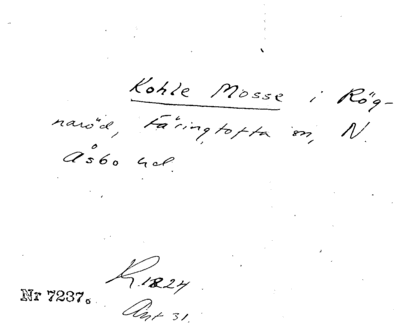 Kohle Mosse i Rög-
naröd, Färingtofta sn, N.
Åsbo hd.
R. 1824
Nr 7237.
Ant 31.